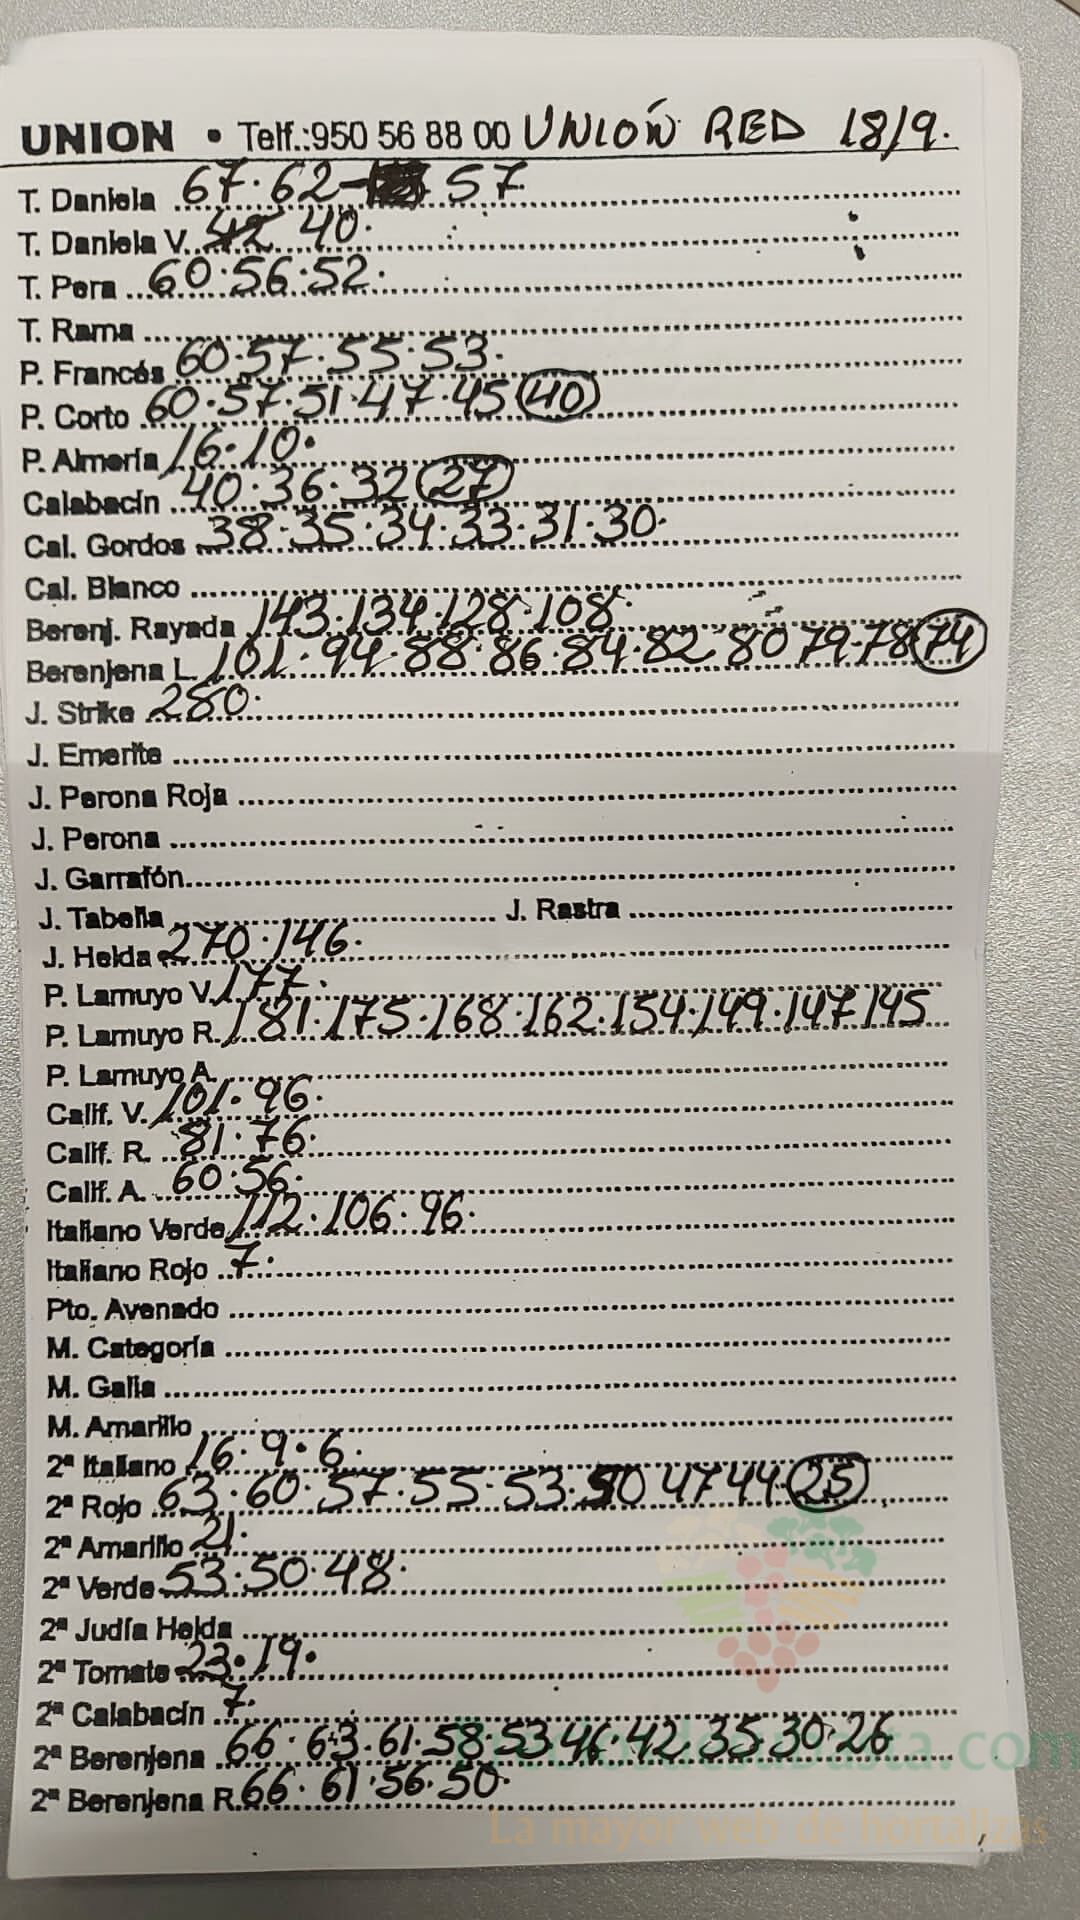 UNION • Telf.:950 56 88 00 UNIÓN RED 18/9.
T. Daniela 67·62- 57
T. Daniela V. 42 40·
T. Pera 60·56·52·
T. Rama
P. Francés 60·57·55·53·
P. Corto 60·57·51·47·45 40
P. Almería 16·10·
Calabacín 40·36·32 27
Cal. Gordos 38·35·34·33·31·30·
Cal. Blanco
Berenj. Rayada 143·134·128·108·
Berenjena L. 101·94·88·86·84·82·80 79·78 74
J. Strike 280·
J. Emerite
J. Perona Roja
J. Perona
J. Garrafón
J. Tabella J. Rastra
J. Helda 270·146·
P. Lamuyo V. 177·
P. Lamuyo R. 181·175·168·162·154·149·147 145
P. Lamuyo A.
Calif. V. 101·96·
Calif. R. 81·76·
Calif. A. 60·56·
Italiano Verde 112·106·96·
Italiano Rojo 7·
Pto. Avenado
M. Categoría
M. Galia
M. Amarillo
2ª Italiano 16·9·6·
2ª Rojo 63·60·57·55·53·50 47 44·25
2ª Amarillo 21·
2ª Verde 53·50·48·
2ª Judía Helda
2ª Tomate 23·19·
2ª Calabacín 7·
2ª Berenjena 66·63·61·58·53·46·42·35·30·26
2ª Berenjena R. 66·61·56·50·
La mayor web de hortalizas